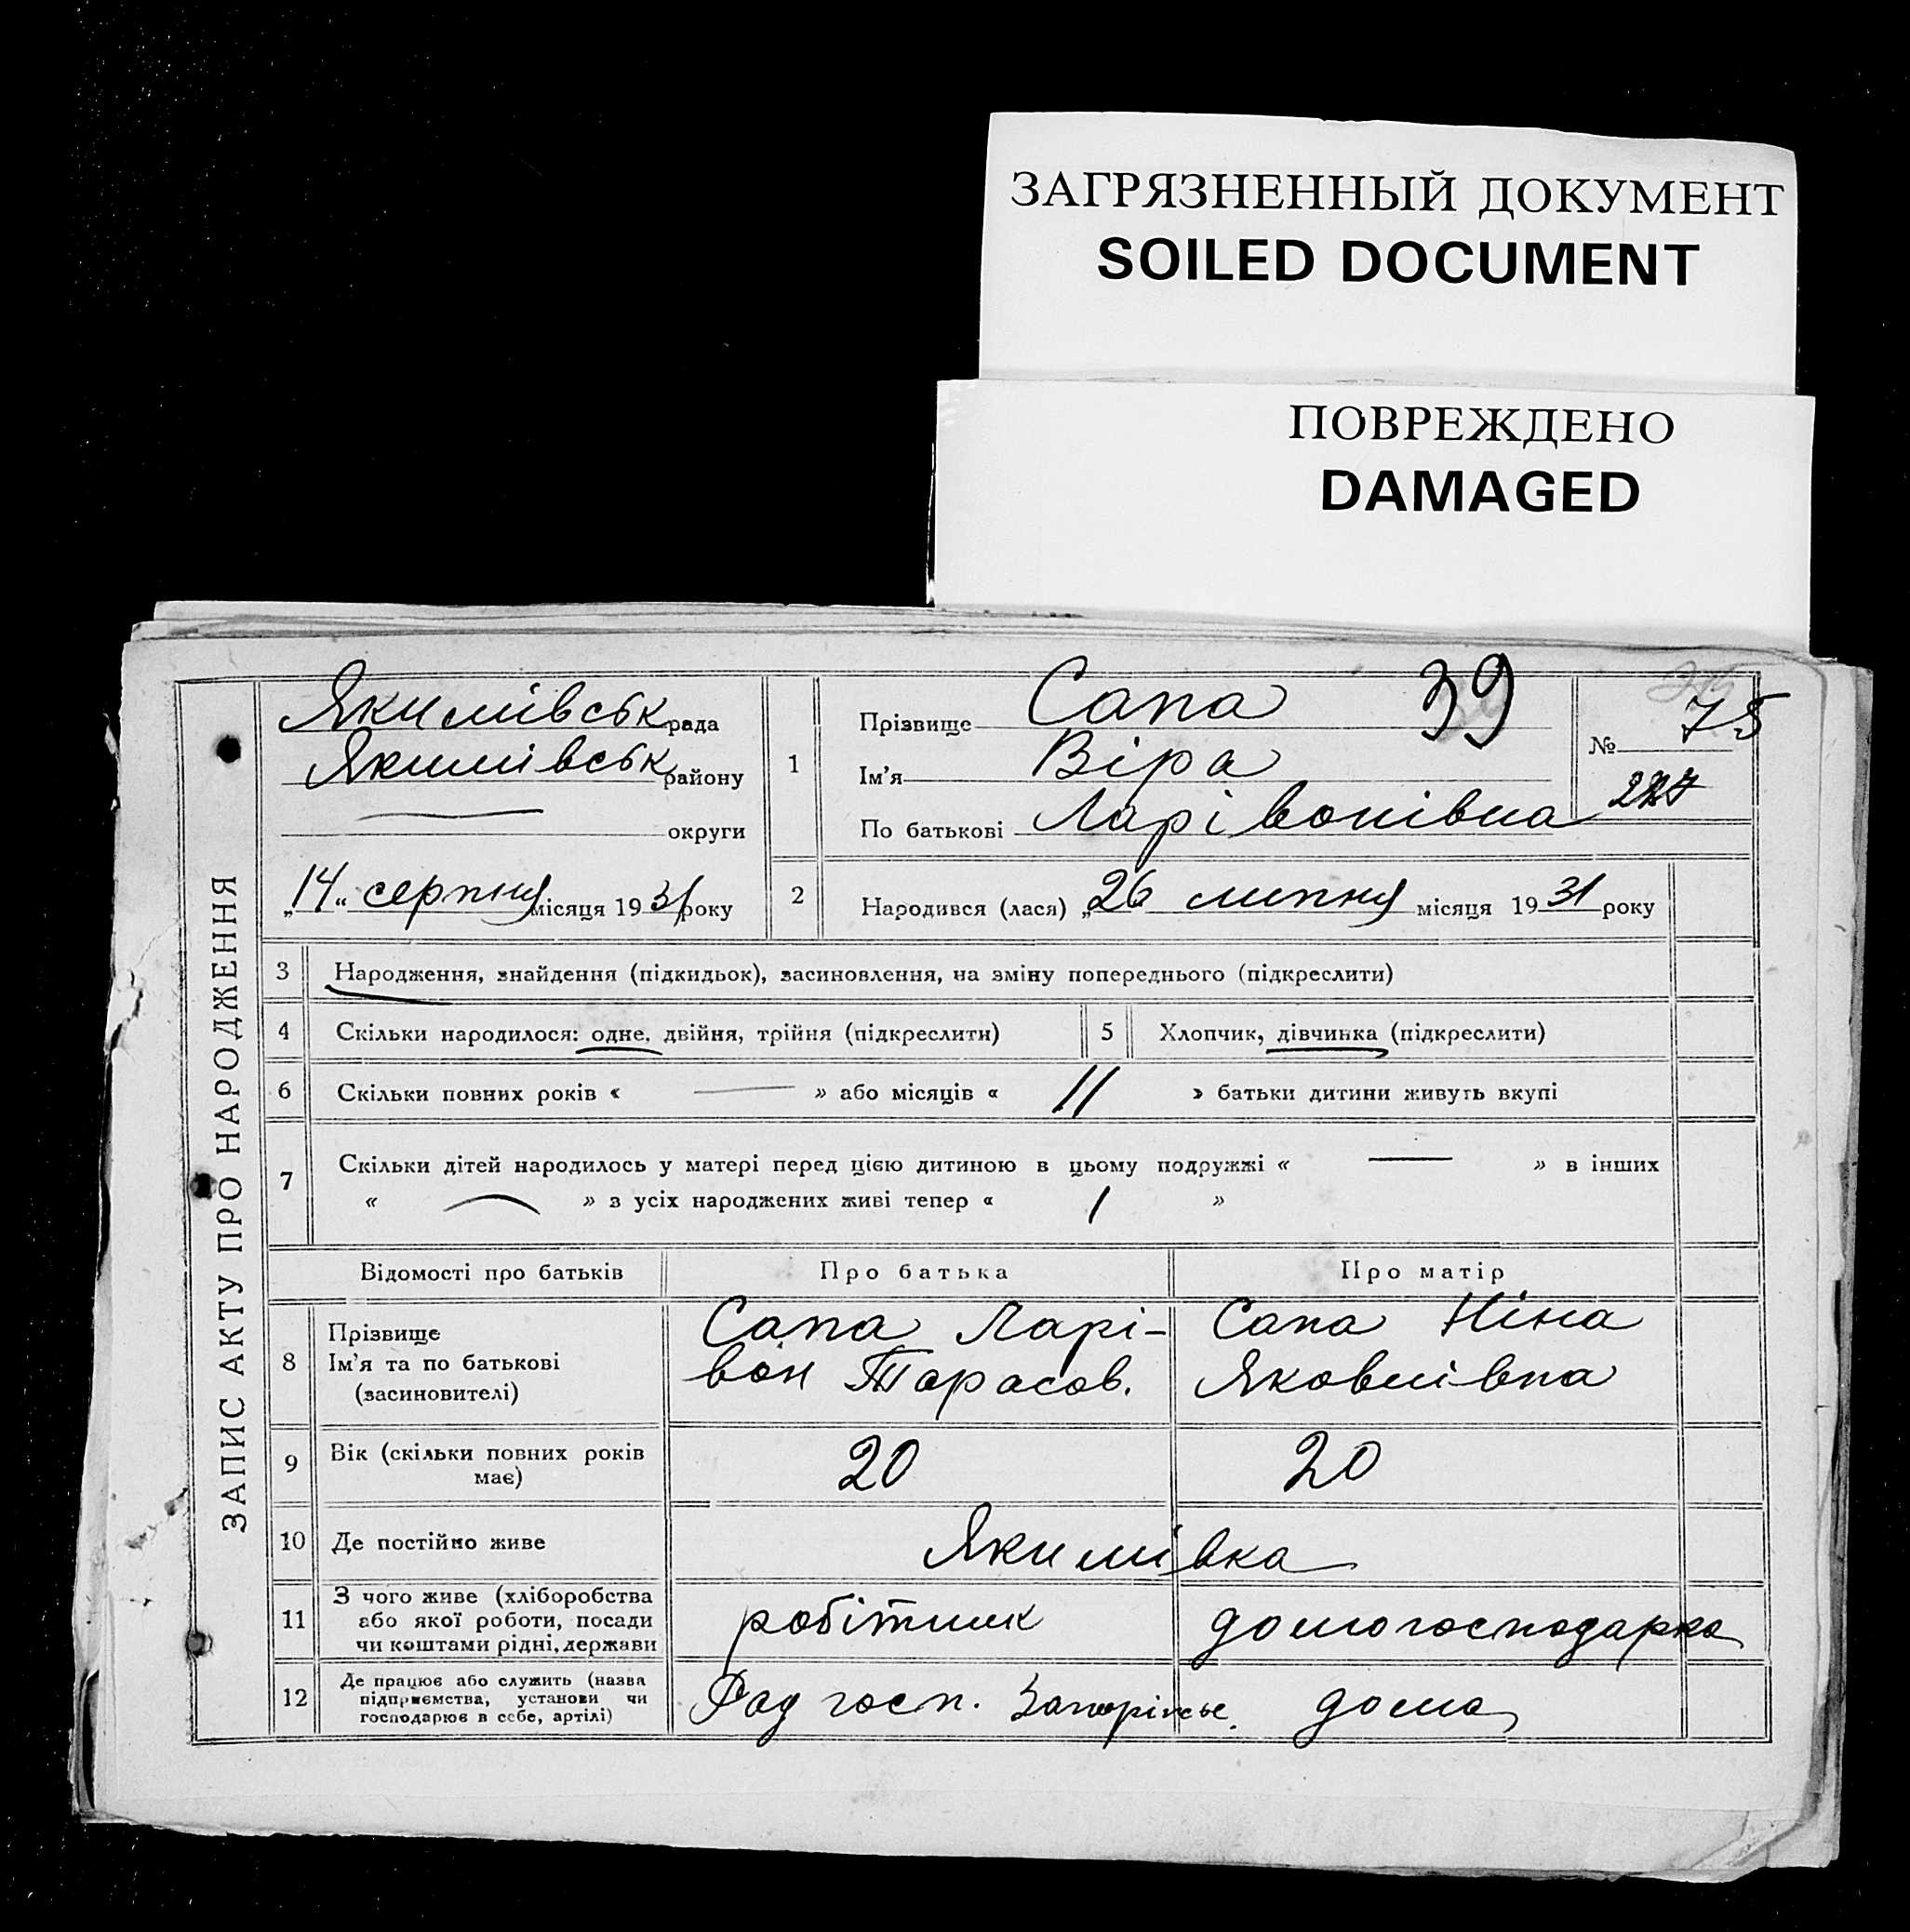 ЗАГРЯЗНЕННЫЙ ДОКУМЕНТ
SOILED DOCUMENT
ПОВРЕЖДЕНО
DAMAGED
ЗАПИС АКТУ ПРО НАРОДЖЕННЯ
Якимівськ рада
Якимівськ району
округи
„14“ серпня місяця 1931 року
1
Прізвище Сапа 39
Ім'я Віра
По батькові Ларівонівна
№ 75
2
Народився (лася) „26 липня місяця 1931 року
3 Народження, знайдення (підкидьок), засиновлення, на зміну попереднього (підкреслити)
4 Скільки народилося: одне, двійня, трійня (підкреслити) 5 Хлопчик, дівчинка (підкреслити)
6 Скільки повних років « — » або місяців « 11 » батьки дитини живуть вкупі
7 Скільки дітей народилось у матері перед цією дитиною в цьому подружжі « — » в інших
« — » з усіх народжених живі тепер « 1 »
Відомості про батьків Про батька Про матір
8 Прізвище
Ім'я та по батькові
(засиновителі)
Сапа Ларі-
вон Тарасов.
Сапа Ніна
Яковлівна
9 Вік (скільки повних років
має)
20 20
10 Де постійно живе Якимівка
11 З чого живе (хліборобства
або якої роботи, посади
чи коштами рідні, держави
робітник домогосподарка
12 Де працює або служить (назва
підприємства, установи чи
господарює в себе, артілі)
Рад госп. Запоріжье. дома